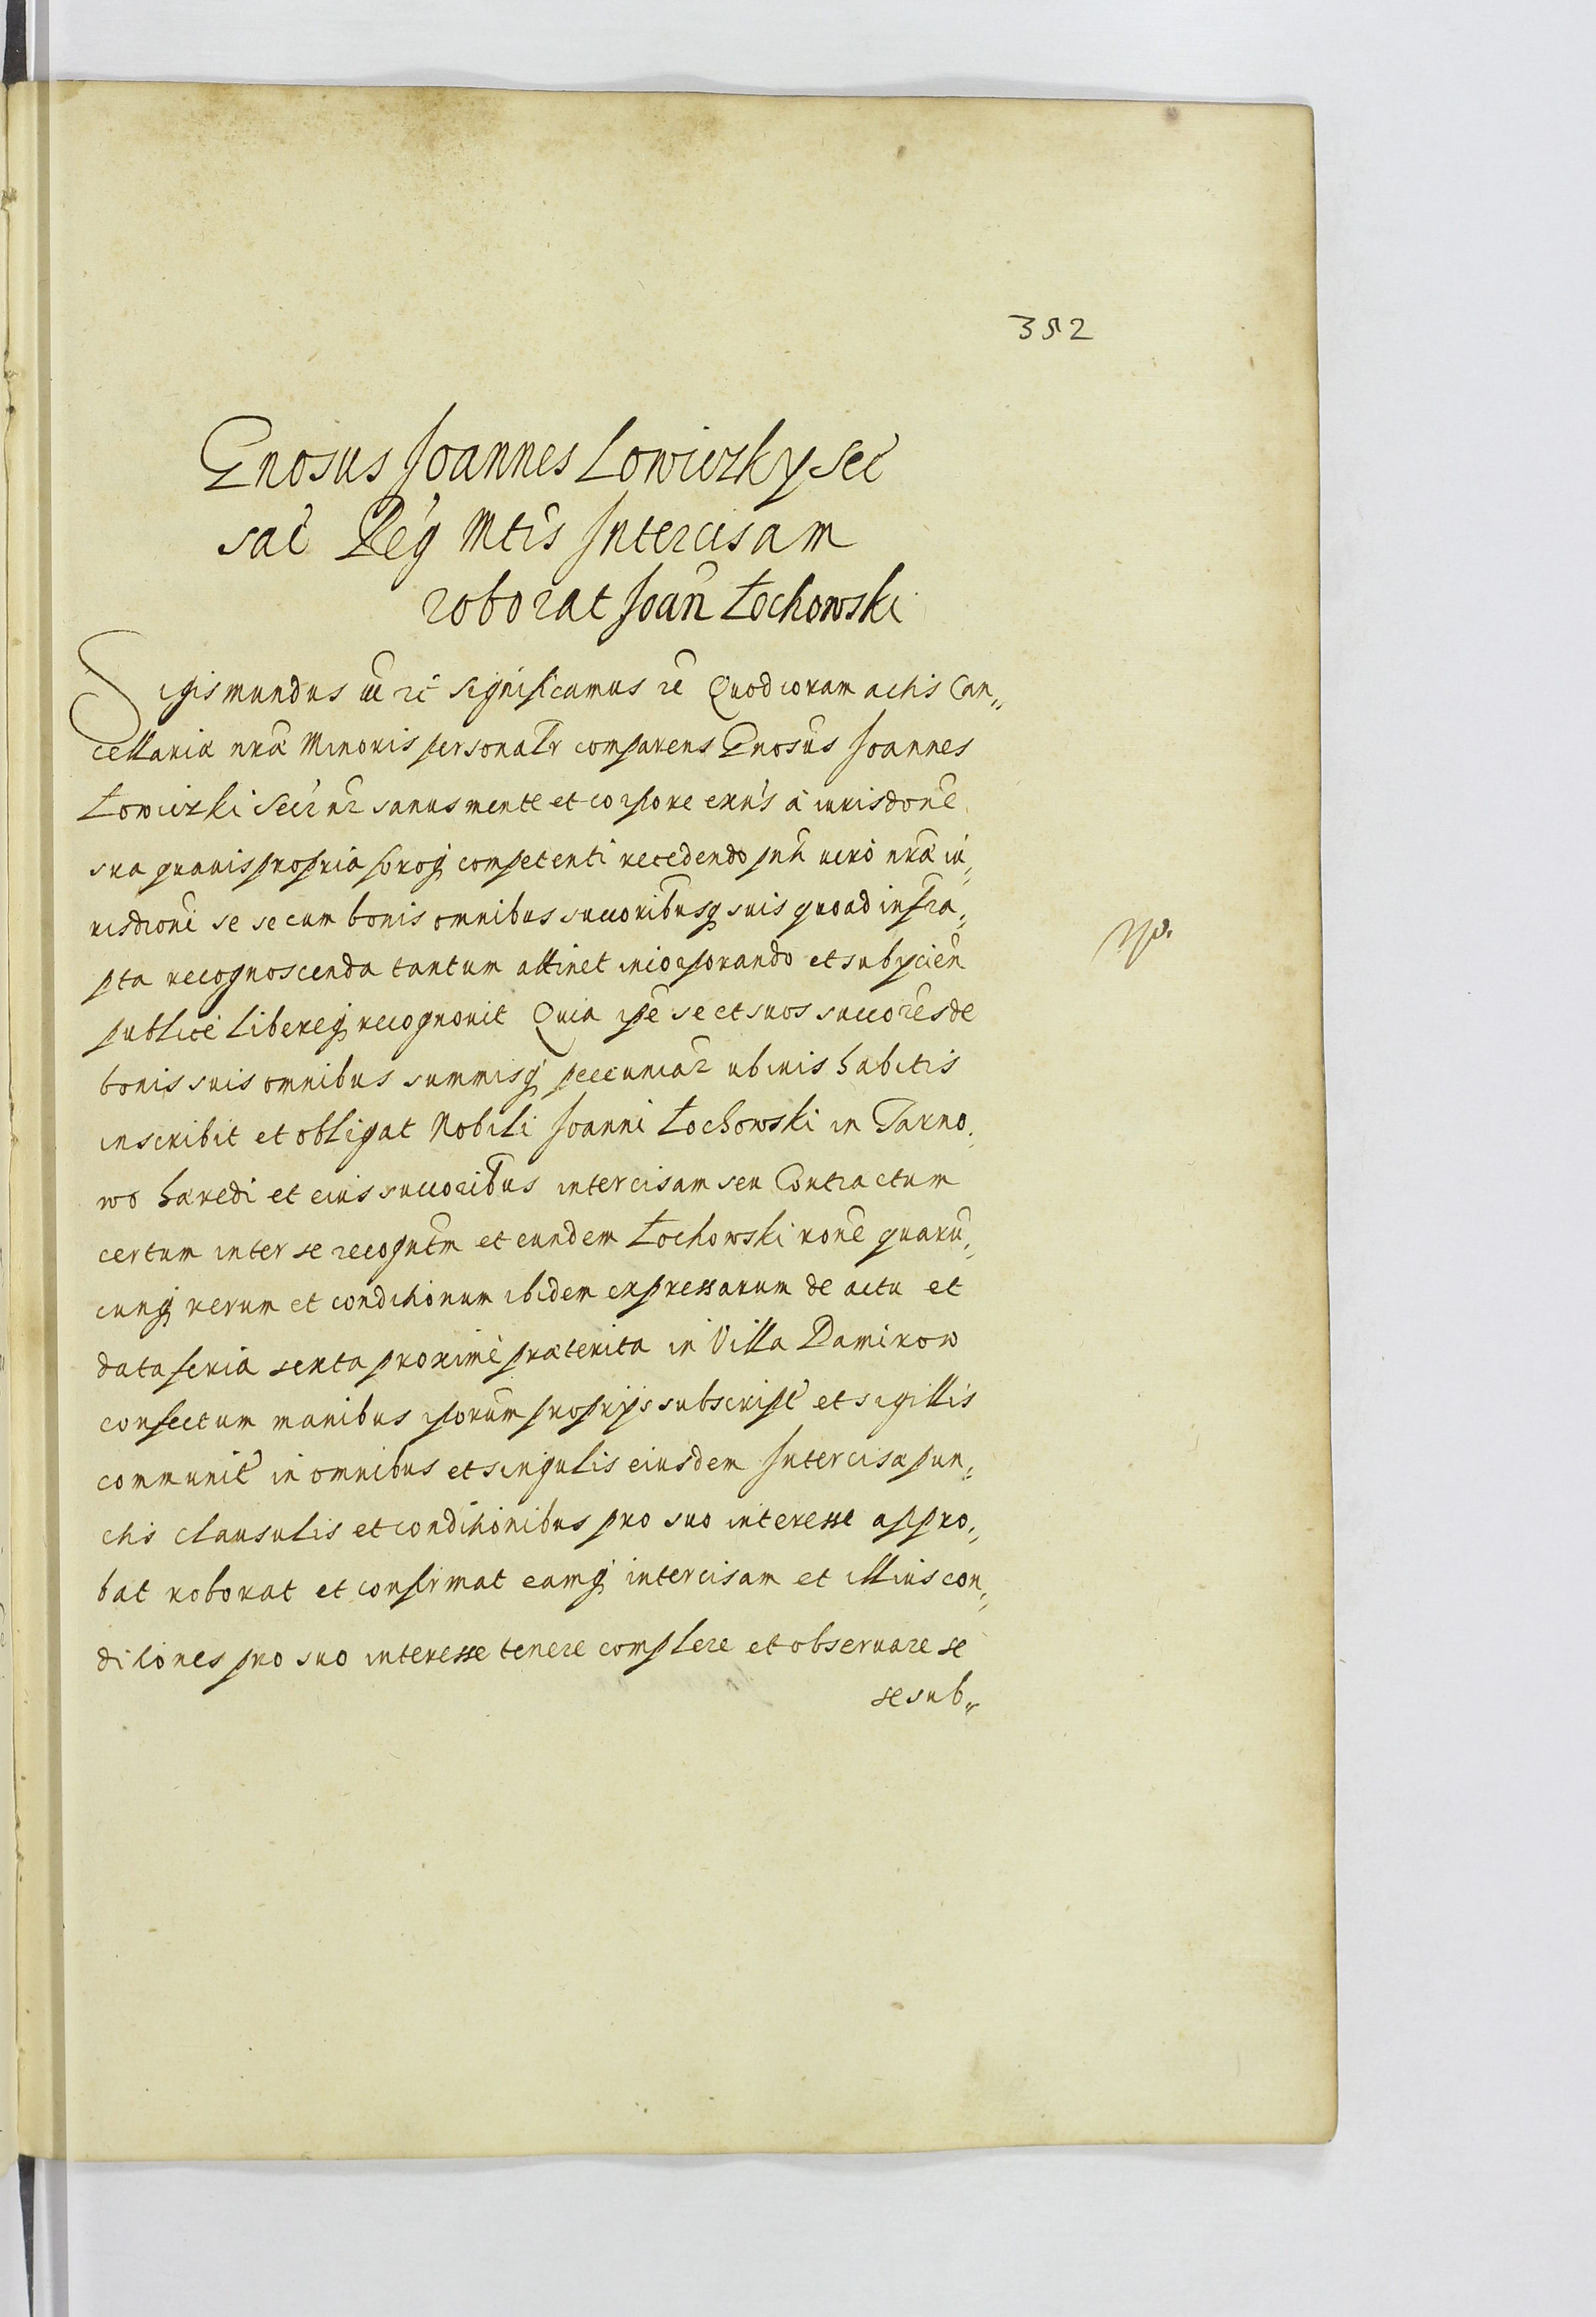 352
Gnosus Joannes Lowiczky Sec
sac Reg Mtis Intercisam
roborat Joan Łochowski
Sigismundus III etc Significamus etc Quod coram actis Can„
cellariæ nræ Minoris personalr comparens Gnosus Joannes
Łowiczki Secr nr sanus mente et corpore exns à iurisdone
sua quauis propria foroq competenti recedendo pnti uerò nræ iu„
risdioni se se cum bonis omnibus succoribusq suis quoad infra„
pta recognoscenda tantum attinet incorporando et subycien
publicè libereq recognouit Quia ipe se et suos succores de
bonis suis omnibus summisq pecuniar ubiuis habitis
inscribit et obligat Nobili Joanni Łochowski in Tarno„
wo hæredi et eius succoribus intercisam seu Contractum
certum inter se recogntm et eundem Łochowski rone quaru„
cunq rerum et conditionum ibidem expressarum de actu et
data feria sexta proximè præterita in Villa Damirow
confectum manibus iporum proprijs subscript et sigillis
communit in omnibus et singulis eiusdem Intercisæ pun„
ctis clausulis et conditionibus pro suo interesse appro„
bat roborat et confirmat eamq intercisam et illius con„
ditiones pro suo interesse tenere complere et obseruare se
se sub„